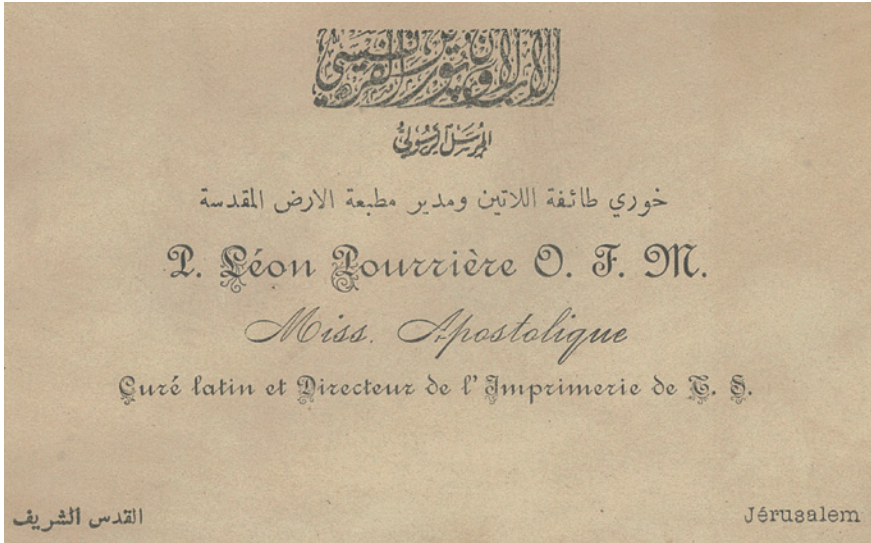 الاب لاون بورير الفرنسيسي
المرسل الرسولي
خوري طائفة اللاتين ومدير مطبعة الارض المقدسة
P. Léon Pourrière O. F. M.
Miss. Apostolique
Curé latin et Directeur de l' Imprimerie de T. S.
القدس الشريف
Jérusalem